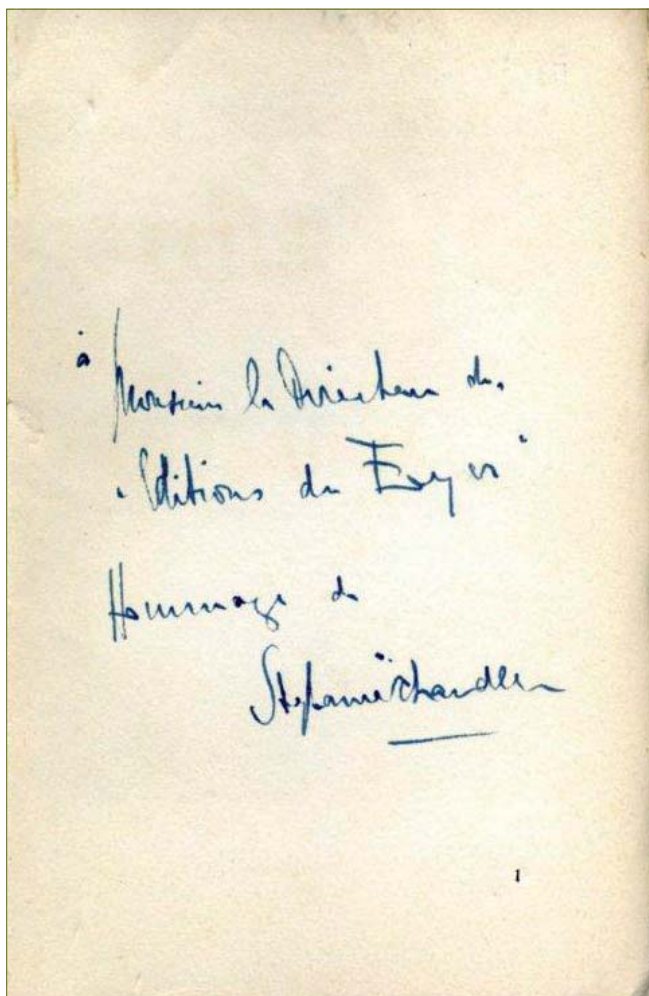 à
Monsieur le Directeur des
"Editions du
Hommage de
Stéphanie Chandler
1